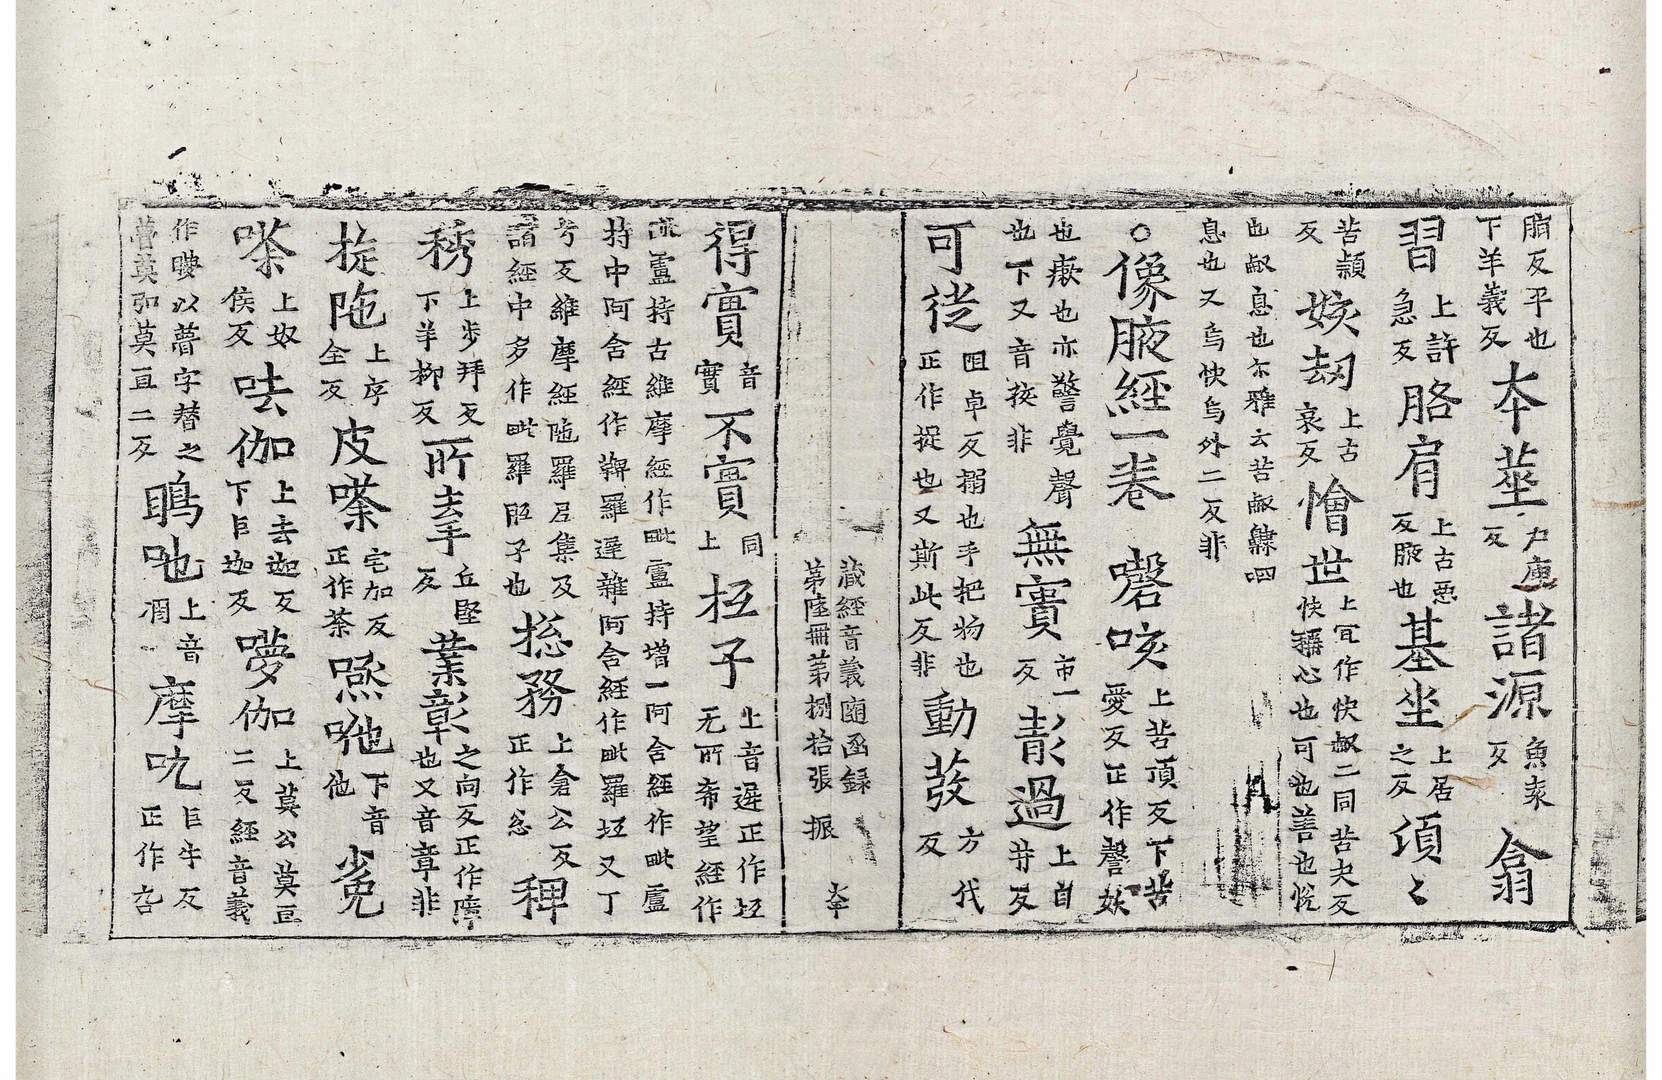 𦙄反平也下羊義反夲䔧力庾反諸源魚袁反翕
習上許急反胳肩上古惡反腋也基坐上居之反項〻
苦頴反㛍刼上古哀反懀世上冝作快䚹二同苦夬反快稱心也可也善也悅
也䚹息也尒雅云苦䚹䶐呬息也又烏快烏外二反非
○像腋經一卷 磬咳上苦頂反下苦愛反正作謦㛍
也瘶也亦警覺聲也下又音挍非無實市一反㪣過上自井反
可㧗阻卓反搦也手把物也正作捉也又斯此反非動葮方代反
藏經音義随函録
第陸冊第捌拾張 振
夲
得實音實不實同上坘子上音遲正作坻无所希望經作
䟽盧持古維摩經作毗盧持增一阿含經作毗盧持中阿含經作鞞羅遲雜阿含經作毗羅坻又丁
兮反維摩經陁羅尼集及諸經中多作毗羅胝子也捴務上倉公反正作怱稗
䅎上步拜反下羊柳反所𢫾丘堅反業彰之向反正作障也又音章非
㨗陁上序全反皮㗬宅加反正作荼㗭㘄下音他㲋
㗬上奴侯反呿伽上去迦反下巨迦反㘉伽上莫公莫亘二反經音義
作㘉以瞢字替之瞢莫弘莫亘二反鴡吔上音凋摩叴巨牛反正作叴